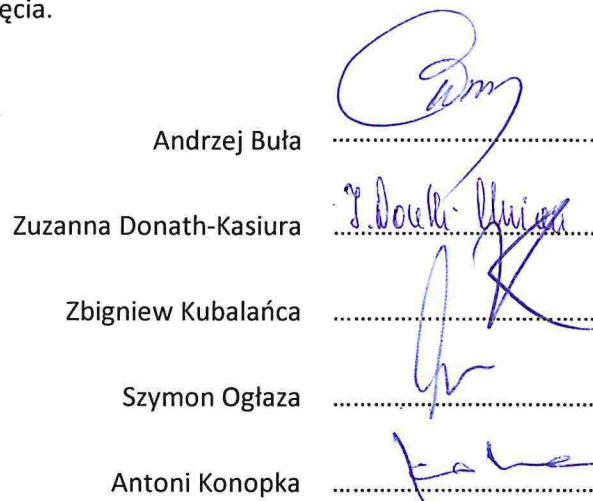 ęcia.
Andrzej Buła ....................................
Zuzanna Donath-Kasiura ....................................
Zbigniew Kubalańca ....................................
Szymon Ogłaza ....................................
Antoni Konopka ....................................